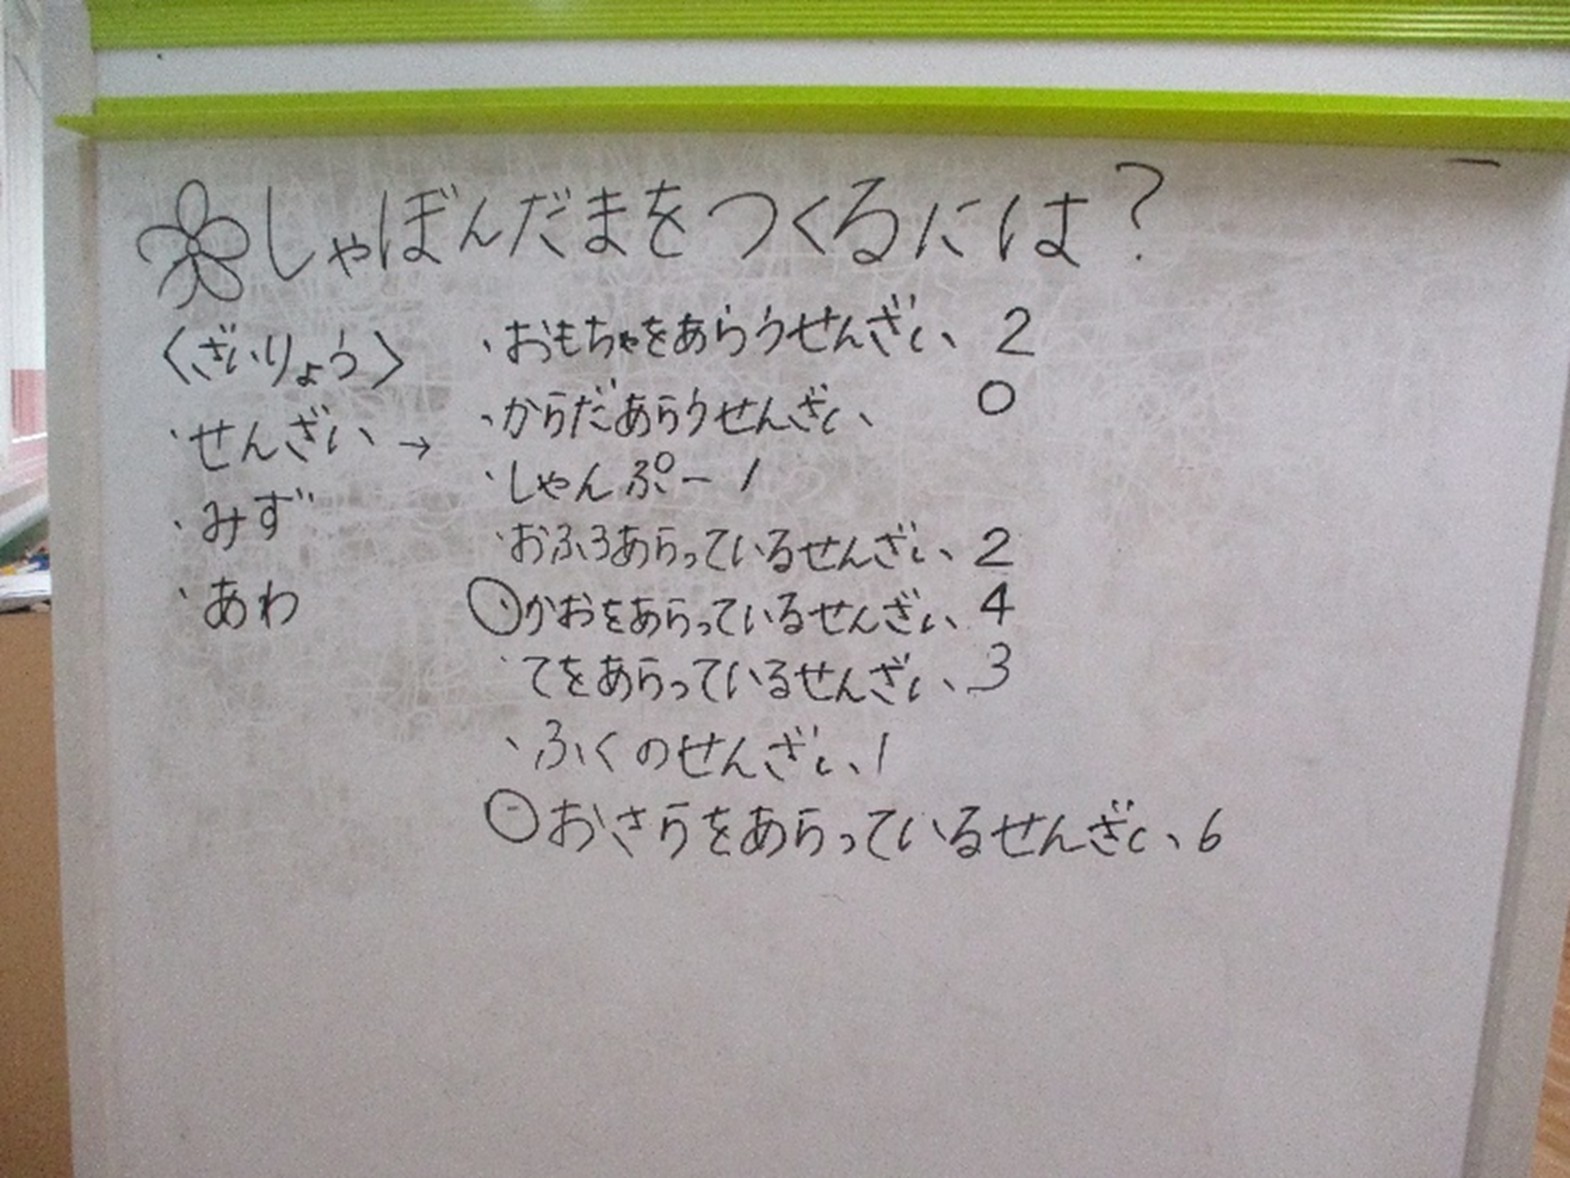 しゃぼんだまをつくるには?
〈ざいりょう〉
・せんざい →
・みず
・あわ
・おもちゃをあらうせんざい、2
・からだあらうせんざい、 0
・しゃんぷー 1
・おふろあらっているせんざい、2
・かおをあらっているせんざい、4
・てをあらっているせんざい、3
・ふくのせんざい、1
・おさらをあらっているせんざい、6